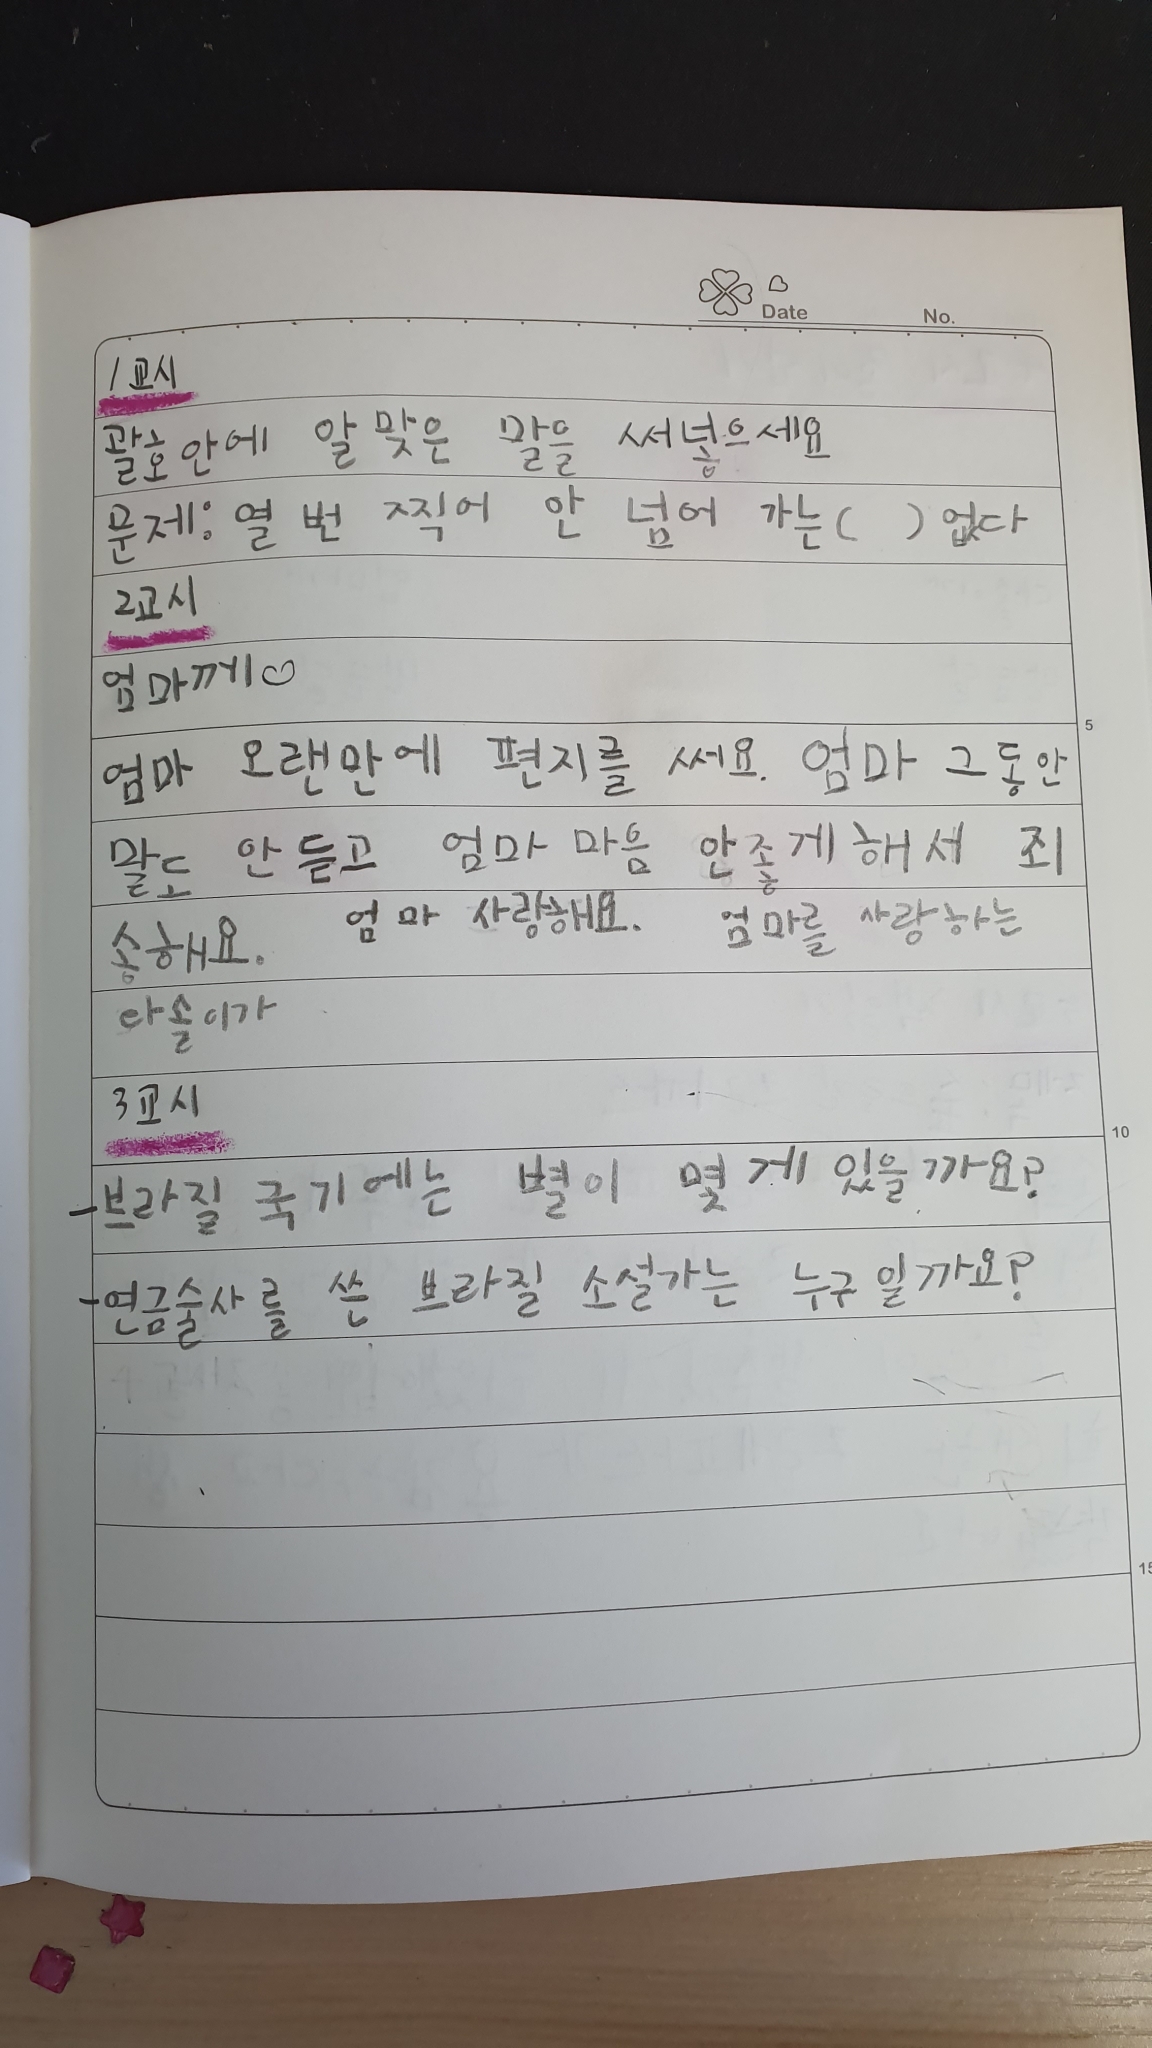 Date No.
1교시
괄호안에 알맞은 말을 써넣으세요
문제: 열 번 찍어 안 넘어 가는( )없다
2교시
엄마께♡
5
엄마 오랜만에 편지를 써요. 엄마 그동안
말도 안 듣고 엄마 마음 안좋게해서 죄
송해요. 엄마 사랑해요. 엄마를 사랑하는
다솔이가
3교시
10
-브라질 국기에는 별이 몇 게 있을까요?
-연금술사를 쓴 브라질 소설가는 누구일까요?
15